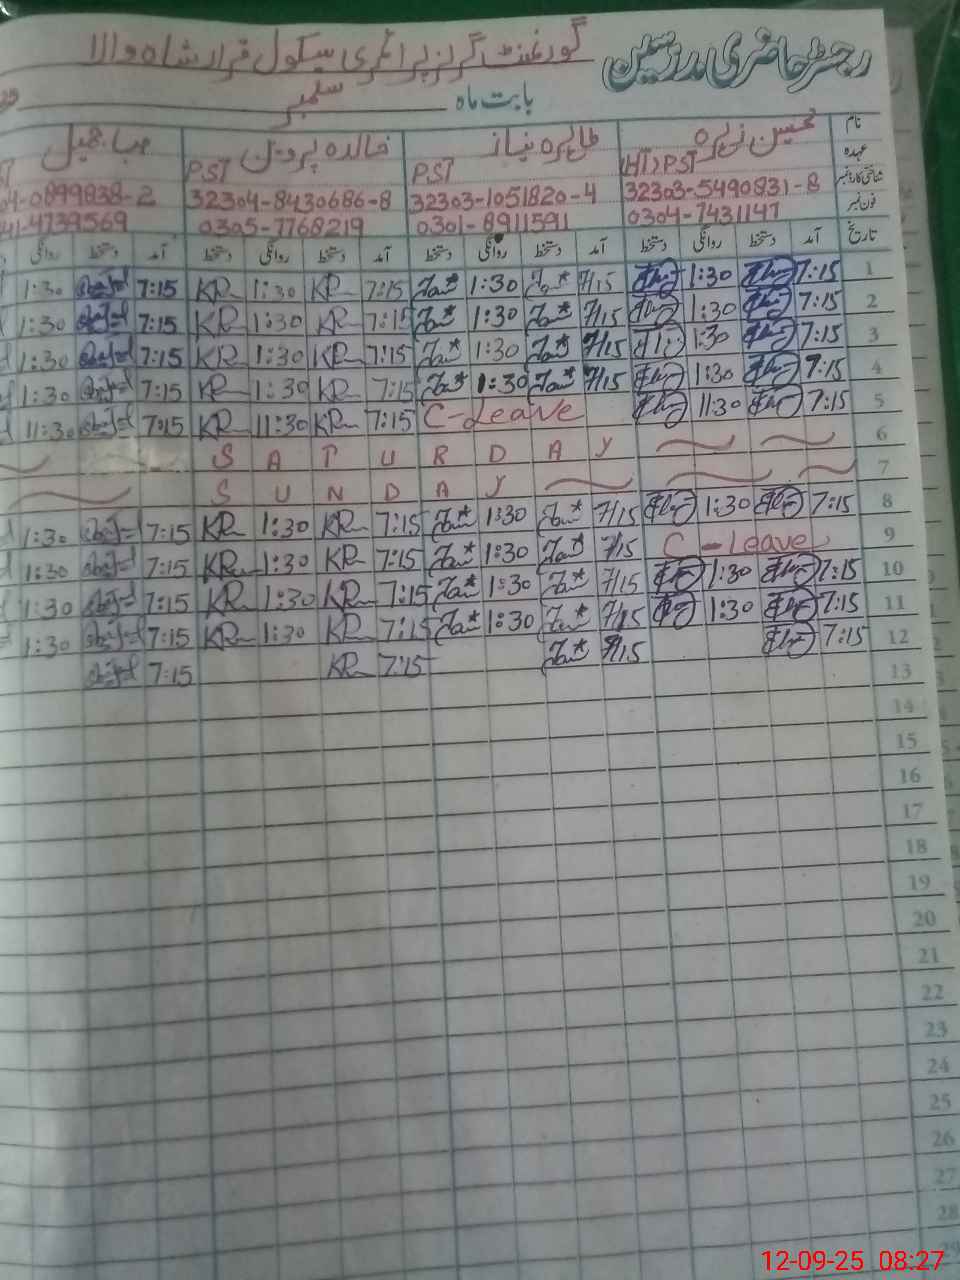 رجسٹر حاضری مدرسین گورنمنٹ گرلز پرائمری سکول قرار شاہ والا
بابت ماہ ستمبر
نام تحسین زہرہ طاہرہ نیاز خالدہ پروین صبا جمیل
عہدہ (HT) PST PST PST
شناختی کارڈ نمبر 32303-5490831-8 32303-1051820-4 32304-8430686-8 04-0899838-2
فون نمبر 0304-7431147 0301-8911591 0305-7768219 41-4739569
تاریخ آمد دستخط روانگی دستخط آمد دستخط روانگی دستخط آمد دستخط روانگی دستخط آمد دستخط روانگی
1 7:15 1:30 7/15 1:30 7:15 KR 1:30 KR 7:15 1:30
2 7:15 1:30 7/15 1:30 7:15 KR 1:30 KR 7:15 1:30
3 7:15 1:30 7/15 1:30 7:15 KR 1:30 KR 7:15 1:30
4 7:15 1:30 7/15 1:30 7:15 KR 1:30 KR 7:15 1:30
5 7:15 11:30 C-Leave 7:15 KR 11:30 KR 7:15 11:30
6 SATURDAY
7 SUNDAY
8 7:15 1:30 7/15 1:30 7:15 KR 1:30 KR 7:15 1:30
9 C-Leave 7/15 1:30 7:15 KR 1:30 KR 7:15 1:30
10 7:15 1:30 7/15 1:30 7:15 KR 1:30 KR 7:15 1:30
11 7:15 1:30 7/15 1:30 7:15 KR 1:30 KR 7:15 1:30
12 7:15 7/15 7:15 KR 7:15
13
14
15
16
17
18
19
20
21
22
23
24
25
26
27
28
29
12-09-25 08:27